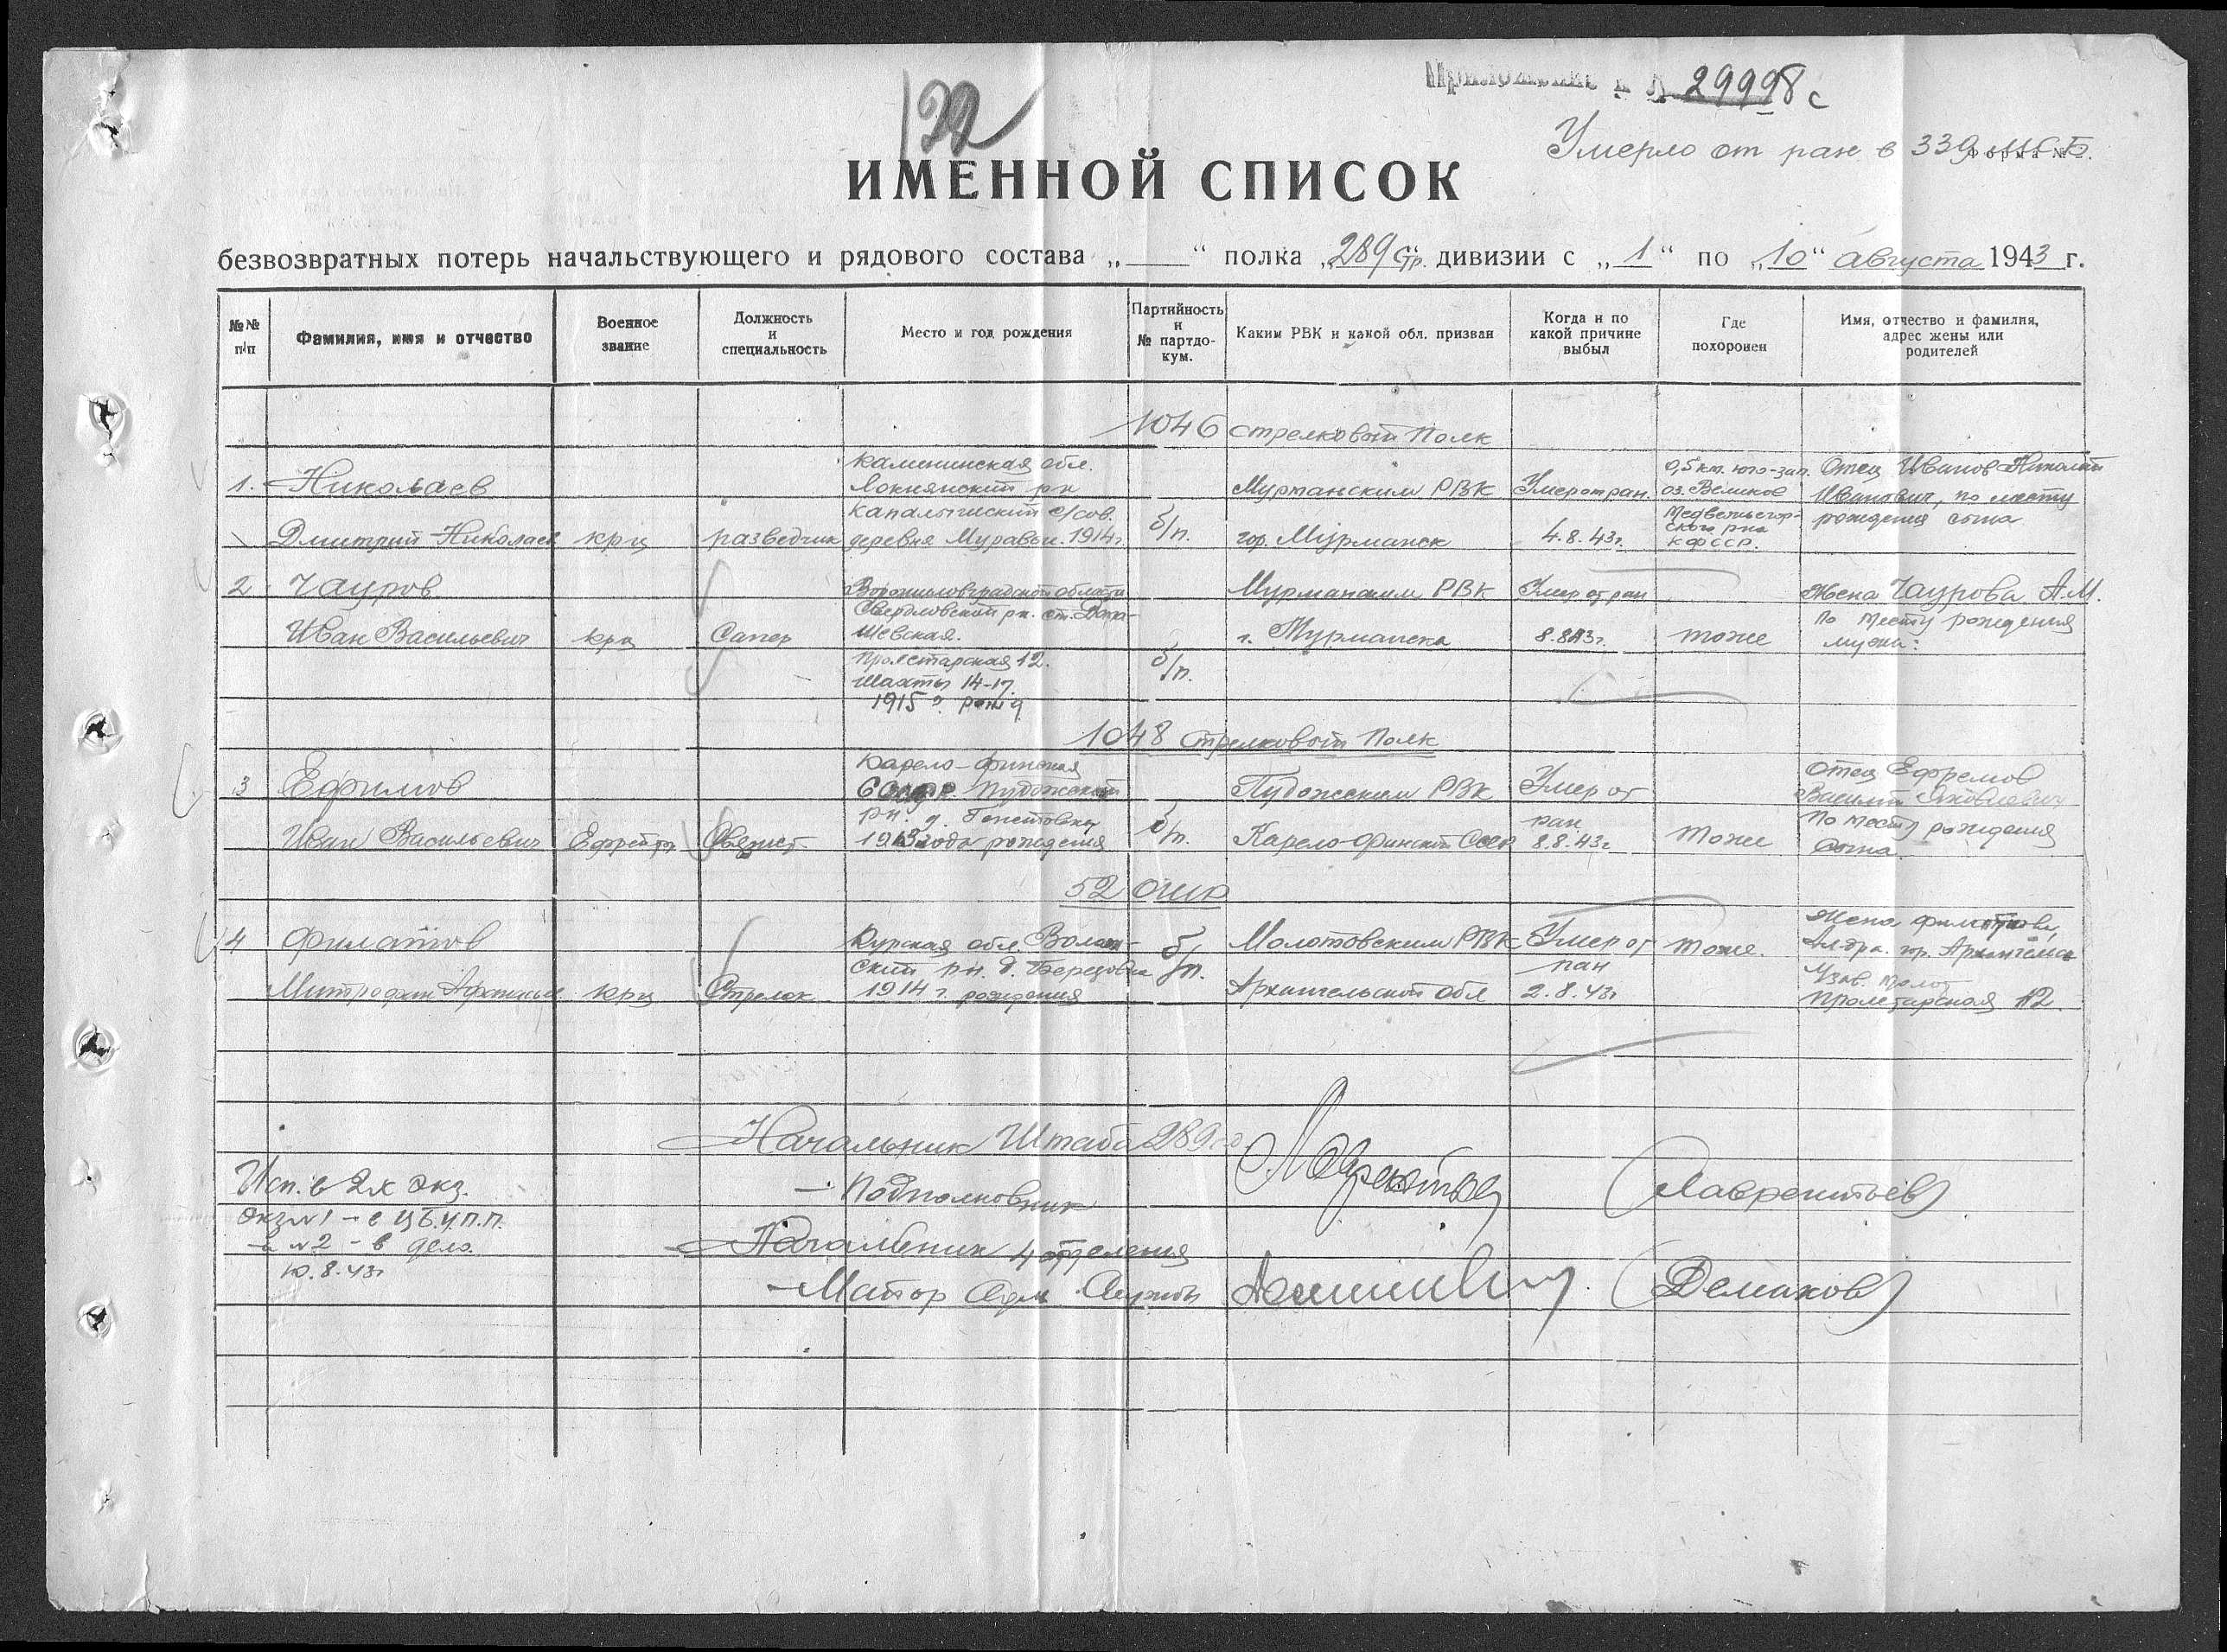 Приложение к № 29998с
132
Умерло от ран в 339 МСБ
Форма № 2.
ИМЕННОЙ СПИСОК
безвозвратных потерь начальствующего и рядового состава „ “ полка „289 стр.“ дивизии с „1“ по „10“ августа 1943 г.
№№ п/п
Фамилия, имя и отчество
Военное звание
Должность и специальность
Место и год рождения
Партийность и № партдо-кум.
Каким РВК и какой обл. призван
Когда и по какой причине выбыл
Где похоронен
Имя, отчество и фамилия, адрес жены или родителей
1046 стрелковый Полк
1. Николаев
Дмитрий Николаев
крц
разведчик
Калининская обл.
Локнянский рн
с/сов.
деревня Муравьи. 1914г.
б/п.
Мурманским РВК
гор. Мурманск
Умер от ран.
4.8.43г.
0,5 км. юго-зап.
оз. Великое
Медвежьегор-
ского р-на
КФССР.
Отец Иванов Николай
Иванович, по месту
рождения сына
2 Чауров
Иван Васильевич
крц
Сапер
Ворошиловградской области
Свердловский рн. ст.
Пролетарская 12.
Шахты 14-17
1915 г. рожд
б/п.
Мурманским РВК
г. Мурманска
Умер от ран
8.8.43г.
тоже
Жена Чаурова А.М.
По месту рождения
мужа:
1048 стрелковый Полк
3 Ефимов
Иван Васильевич
Ефрейтор
Связист
Карело-финская
Пудожский
рн. д.
года рождения
б/п.
Пудожским РВК
Карело-Финской СССР
Умер от
ран
8.8.43г
тоже
Отец Ефремов
Василий Яковлевич
По месту рождения
сына
52 ОШР
4 Филатов
Митрофан Афанасьев
крц
Стрелок
Курская обл.
ский рн. д. Березовка
1914 г. рождения
б/п.
Молотовским РВК
Архангельской обл
Умер от
ран
2.8.43г
тоже.
Жена Филатова,
гор. Архангельск
Пролетарская 12.
Начальник Штаба 289 сд
— Подполковник
(Лаврентьев)
Начальник 4 отделения
— Майор Адм. Службы
(Демаков)
Исп. в 2х экз.
Экз №1 – в ЦБ.У.П.П.
–„– №2 – в дело.
10.8.43г